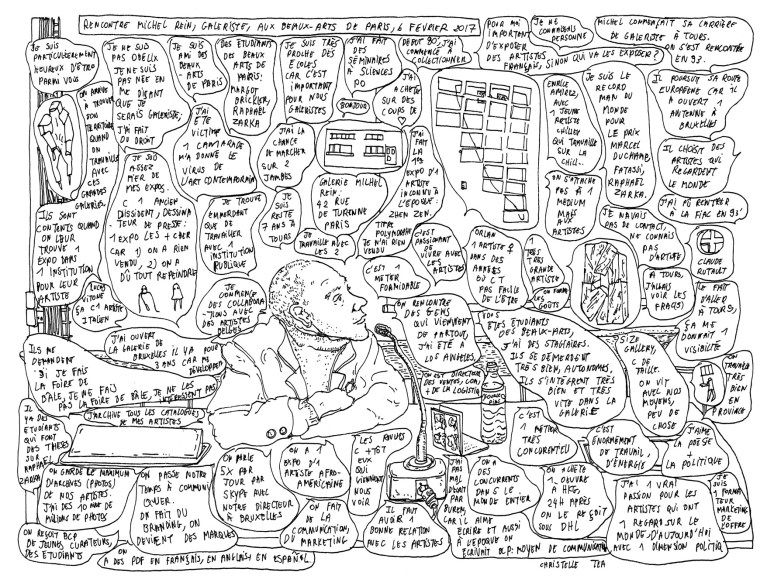 RENCONTRE MICHEL REIN, GALERISTE, AUX BEAUX-ARTS DE PARIS, 6 FEVRIER 2017
JE SUIS
PARTICULIEREMENT
HEUREUX D'ÊTRE
PARMI VOUS
ON ARRIVE
A TROUVER
SON
TERRITOIRE
QUAND
ON
TRAVAILLE
AVEC
CES
GRANDES
GALERIES.
JE NE SUIS
PAS OBÉLIX
JE NE SUIS
PAS NÉE EN
ME DISANT
QUE JE
SERAIS GALERISTE,
J'AI FAIT
DU DROIT
JE SUIS
AMI DES
BEAUX
-ARTS
DE PARIS
DES ETUDIANTS
DES BEAUX
ARTS DE
PARIS:
MARGOT
RAPHAEL
ZARKA
JE SUIS TRÈS
PROCHE DES
ECOLES
CAR C'EST
IMPORTANT
POUR NOUS
GALERISTES
J'AI FAIT
DES
SÉMINAIRES
A SCIENCES
PO
BONJOUR
DÉBUT 80', J'AI
COMMENCÉ A
COLLECTIONNER
J'AI
ACHETÉ
SUR DES
COUPS DE
POUR MOI
IMPORTANT
D'EXPOSER
DES ARTISTES
FRANÇAIS, SINON QUI VA LES EXPOSER?
JE NE
CONNAISSAIS
PERSONNE
MICHEL COMMENÇAIT SA CARRIÈRE
DE GALERISTE À TOURS.
ON S'EST RENCONTRÉ
EN 93.
J'AI
ÉTÉ
VICTIME
1 CAMARADE
M'A DONNÉ LE
VIRUS DE
L'ART CONTEMPORAIN
J'AI LA
CHANCE
DE MARCHER
SUR 2
JAMBES
GALERIE MICHEL
REIN:
42 RUE
DE TURENNE
PARIS
J'AI
FAIT
LA 1ÈRE
EXPO D'1
ARTISTE
INCONNU À
L'EPOQUE:
ZHEN ZEN.
AVEC
1 JEUNE
ARTISTE
QUI TRAVAILLE
SUR LA
JE SUIS LE
RECORD
MAN DU
MONDE
POUR
LE PRIX
MARCEL
DUCHAMP,
RAPHAEL
ZARKA.
IL POURSUIT SA ROUTE
EUROPÉENNE CAR IL
A OUVERT 1
ANTENNE À
BRUXELLES
IL CHOISIT DES
ARTISTES QUI
REGARDENT
LE MONDE
J'AI PU RENTRER
À LA FIAC EN 93'
ON S'ATTACHE
PAS À 1
MEDIUM
MAIS
AUX
ARTISTES
JE N'AVAIS
PAS DE CONTACT,
NE CONNAIS
PAS
D'ARTISTE
CLAUDE
RUTAULT
ILS SONT
CONTENTS QUAND
ON LEUR
TROUVE 1
EXPO DANS
1 INSTITUTION
POUR LEUR
ARTISTE
JE SUIS
ASSEZ
FIER DE
MES EXPOS.
C 1 ANCIEN
DISSIDENT, DESSINA
TEUR DE PRESSE:
1 EXPO LES + CHER
CAR 1) ON A RIEN
VENDU 2) ON A
DÛ TOUT REPEINDRE
JE TROUVE
EMMERDANT
QUE DE
TRAVAILLER
AVEC 1
INSTITUTION
PUBLIQUE
JE
SUIS
RESTÉ
7 ANS À
TOURS
JE TRAVAILLE AVEC
LES 2
JE N'AI RIEN
VENDU
C'EST
PASSIONNANT
DE
VIVRE AVEC
LES
ARTISTES
C'EST 1
METIER
FORMIDABLE
ORLAN
1 ARTISTE ♀
DANS DES
ANNÉES
OÙ C T
PAS FACILE
DE L'ÊTRE
1
TRÈS
TRÈS
GRANDE
ARTISTE
ON FORME
LES
GOÛTS
A TOURS,
J'ALLAIS
VOIR LES
FRAC(S)
LE FAIT
D'ALLER
À TOURS,
ÇA ME
DONNAIT 1
VISIBILITÉ
LUCA
VITONE
ÇA C 1 ARTISTE
ITALIEN
JE
COMMENCE
DES COLLABORA
-TIONS AVEC
DES ARTISTES
BELGES
J'AI OUVERT
LA GALERIE DE
BRUXELLES IL Y A
3 ANS CAR ME
ILS ME
DEMANDENT
SI JE FAIS
LA FOIRE DE
BÂLE, JE NE FAIS
PAS LA FOIRE DE BÂLE, JE NE LES
INTÉRESSENT PAS
J'ARCHIVE TOUS LES CATALOGUES
DE MES ARTISTES
ON RENCONTRE
DES GENS
QUI VIENNENT
DE PARTOUT,
J'AI ÉTÉ À
LOS ANGELES.
ON EST DIRECTEUR
DES VENTES, COM,
+ DE LA LOGISTIQ
VOUS
ÊTES ÉTUDIANTS
DES BEAUX-ARTS,
J'AI DES STAGIAIRES.
ILS SE DÉMERDENT
TRÈS BIEN, AUTONOMES,
ILS S'INTÈGRENT TRÈS
BIEN ET TRÈS
VITE DANS LA
GALERIE
SIZE
GALLERY,
C DE
TAILLE.
ON VIT
AVEC NOS
MOYENS,
PEU DE
CHOSE
ON
TRAVAILLE
TRÈS
BIEN EN
PROVINCE
IL
Y A DES
ETUDIANTS
QUI FONT
DES THÈSES
SUR
RAPHAEL
ZARKA
ON GARDE LE MAXIMUM
D'ARCHIVES (PHOTOS)
DE NOS ARTISTES.
J'AI DES 10AINE DE
MILLIERS DE PHOTOS
ON PASSE NOTRE
TEMPS À COMMUNI
QUER.
ON FAIT DU
BRANDING, ON
DEVIENT DES MARQUES
ON PARLE
5X PAR
JOUR PAR
SKYPE AVEC
NOTRE DIRECTEUR
À BRUXELLES
ON A 1
EXPO D'1
ARTISTE AFRO-
AMÉRICAINE
ON FAIT
DE LA
COMMUNICATION,
DU MARKETING
LES REVUES
C +TÔT
EUX
QUI
VIENNENT
NOUS
VOIR
IL FAUT
AVOIR 1
BONNE RELATION
AVEC LES ARTISTES
J'AI
PAS
MAL
DÉBUT
PAR
BUREN,
CAR IL AIME
ÉCRIRE ET AUSSI
À L'EPOQUE ON
ÉCRIVAIT BCP: MOYEN DE COMMUNICATION
ON A
CONCURRENTS
DANS LE
MONDE ENTIER
C'EST
1 METIER
TRÈS
CONCURENTIEL
ON A ACHETÉ
1 OEUVRE
À HKG,
24H APRÈS
ON LE REÇOIT
SOUS DHL
C'EST
ENORMÉMENT
DE TRAVAIL,
D'ÉNERGIE
J'AIME
LA POÉSIE
+
LA POLITIQUE
J'AI 1 VRAI
PASSION POUR LES
ARTISTES QUI ONT
1 REGARD SUR LE
MONDE D'AUJOURD'HUI
AVEC 1 DIMENSION POLITIQ
JE
SUIS
1 FORMA
TEUR
MARKETING
DE
COFFRE
ON REÇOIT BCP
DE JEUNES CURATEURS,
DES ÉTUDIANTS
ON
A DES PDF EN FRANÇAIS, EN ANGLAIS, EN ESPAGNOL
CHRISTELLE TÉA